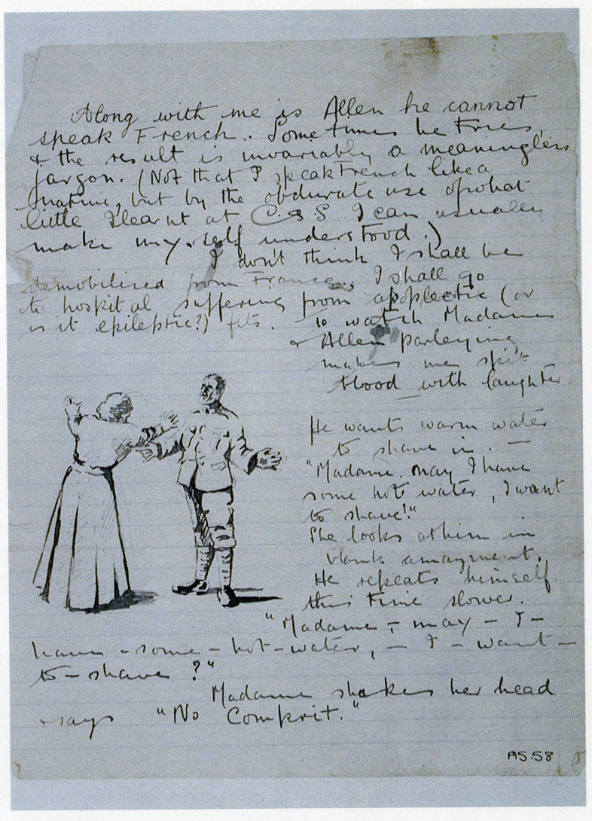 Along with me is Allen he cannot
speak French. Sometimes he tries,
& the result is invariably a meaningless
jargon. (Not that I speak French like a
native, but by the obdurate use of what
little I learnt at C&S I can usually
make myself understood.)
I don't think I shall be
demobilised from France, I shall go
to hospital suffering from apoplectic (or
is it epileptic?) fits. To watch Madame
& Allen parleying
makes me spit
blood with laughter
He wants warm water
to shave in. —
"Madame, may I have
some hot water, I want
to shave!"
She looks at him in
blank amazement.
He repeats himself
this time slower.
"Madame, – may – I –
have – some – hot – water, – I – want –
to – shave ?"
Madame shakes her head
& says "No Comprit."
AS.58